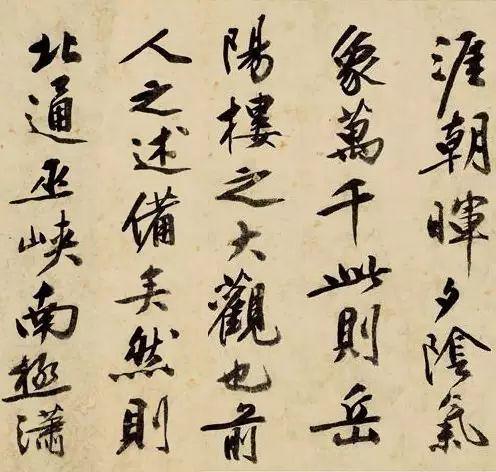 涯朝暉夕陰氣
象萬千此則岳
陽樓之大觀也前
人之述備矣然則
北通巫峽南極瀟